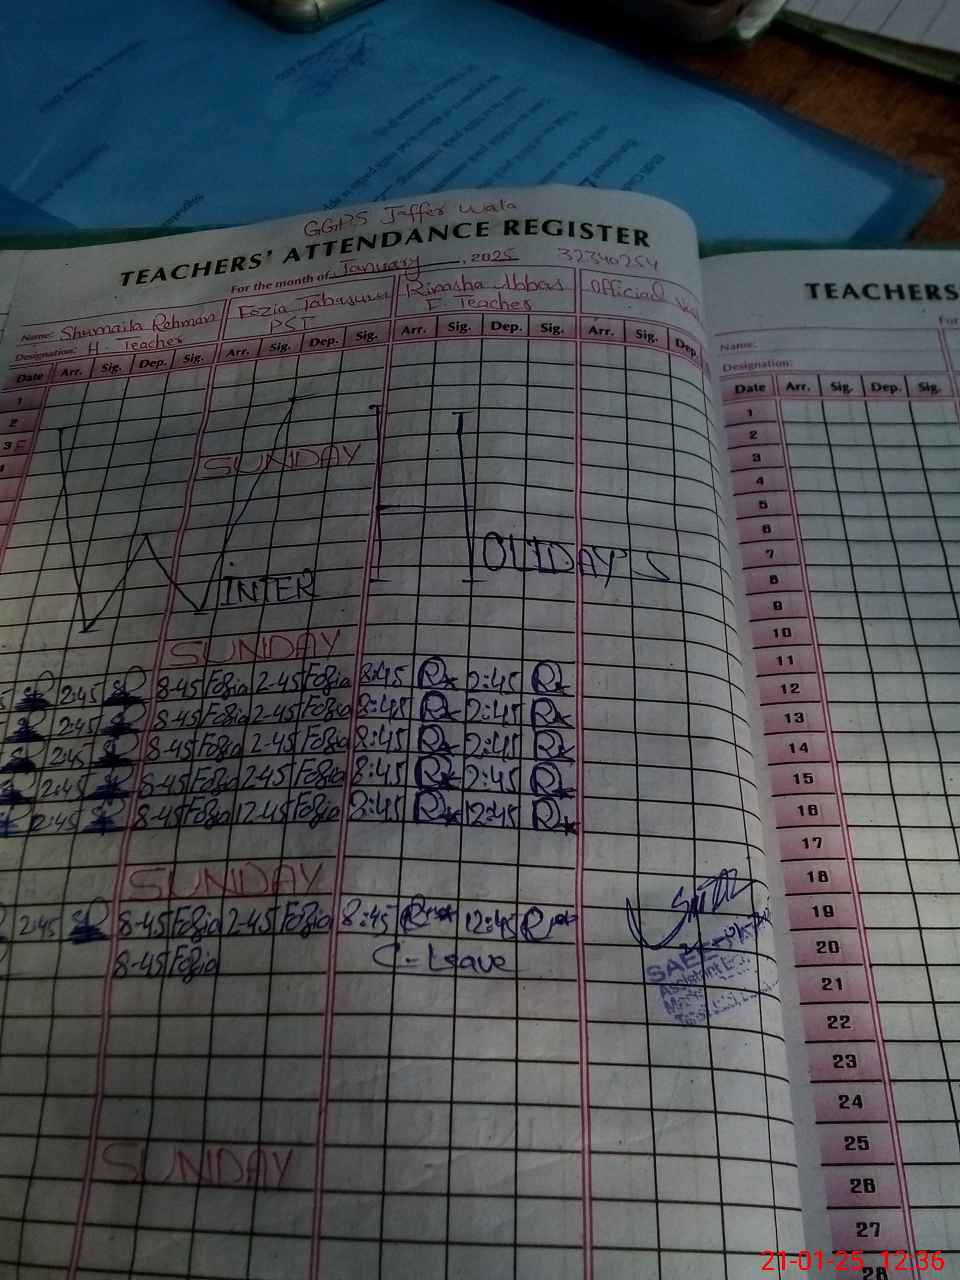 GGPS Jaffer Wala
TEACHERS' ATTENDANCE REGISTER
For the month of January, 2025 32340254
Name: Shumaila Rehman Fozia Tabasum Rimsha Abbas Official
Designation: H. Teacher PST E Teacher
Date Arr. Sig. Dep. Sig. Arr. Sig. Dep. Sig. Arr. Sig. Dep. Sig. Arr. Sig. Dep.
1
2
3 F
SUNDAY
WINTER HOLIDAY'S
SUNDAY
2:45 8-45 Fozia 2-45 Fozia 8:45 2:45
2:45 8-45 Fozia 2-45 Fozia 8:45 2:45
2:45 8-45 Fozia 2-45 Fozia 8:45 2:45
2:45 8-45 Fozia 2-45 Fozia 8:45 2:45
2:45 8-45 Fozia 12-45 Fozia 8:45 12:45
SUNDAY
2:45 8-45 Fozia 2-45 Fozia 8:45 12:45
8-45 Fozia C-Leave
SUNDAY
TEACHERS
Name:
Designation:
Date Arr. Sig. Dep. Sig.
1
2
3
4
5
6
7
8
9
10
11
12
13
14
15
16
17
18
19
20
21
22
23
24
25
26
27
28
21-01-25 12:36